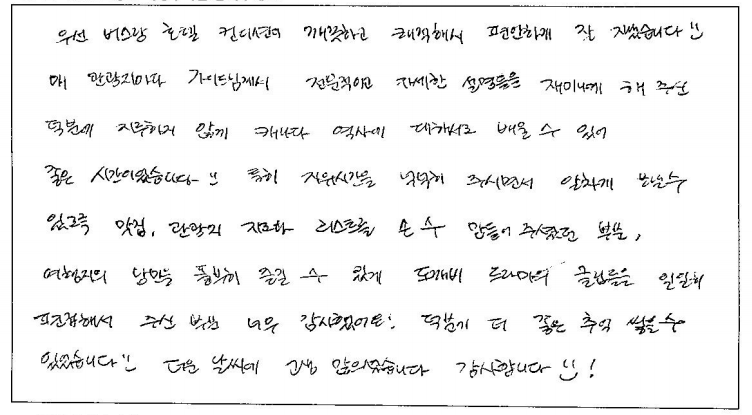 우선 버스랑 호텔 컨디션이 깨끗하고 쾌적해서 편안하게 잘 지냈습니다 :)
매 관광지마다 가이드님께서 전문적이고 자세한 설명들을 재미나게 해 주신
덕분에 지루하지 않게 캐나다 역사에 대해서도 배울 수 있어
좋은 시간이었습니다 :) 특히 자유시간을 넉넉히 주시면서 알차게 보낼 수
있게끔 맛집, 관광지 지도와 리스트를 손수 만들어 주셨던 부분,
여행지의 낭만을 풍부히 즐길 수 있게 도깨비 드라마의 클립들을 일일히
편집해서 주신 부분 너무 감사했어요! 덕분에 더 좋은 추억 쌓을 수
있었습니다 :) 더운 날씨에 고생 많으셨습니다 감사합니다 :) !